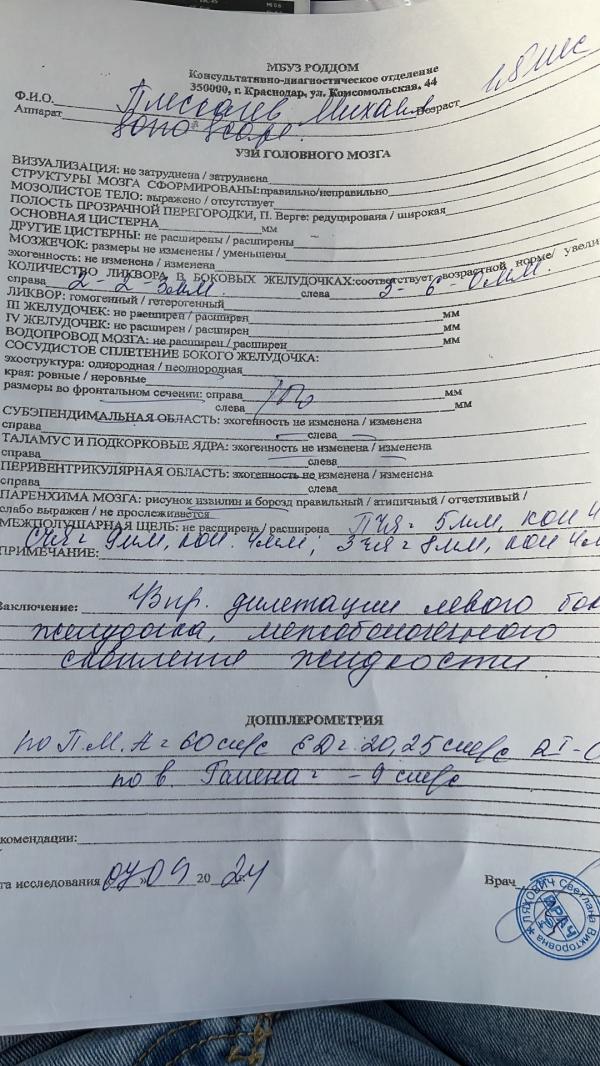 МБУЗ РОДДОМ
Консультативно-диагностическое отделение
350000, г. Краснодар, ул. Комсомольская, 44
Ф.И.О. Михаил Возраст 1,5 мес
Аппарат sono scape
УЗИ ГОЛОВНОГО МОЗГА
ВИЗУАЛИЗАЦИЯ: не затруднена / затруднена
СТРУКТУРЫ МОЗГА СФОРМИРОВАНЫ:правильно/неправильно
МОЗОЛИСТОЕ ТЕЛО: выражено / отсутствует
ПОЛОСТЬ ПРОЗРАЧНОЙ ПЕРЕГОРОДКИ, П. Верге: редуцирована / широкая
ОСНОВНАЯ ЦИСТЕРНА мм
ДРУГИЕ ЦИСТЕРНЫ: не расширены / расширены
МОЗЖЕЧОК: размеры не изменены / уменьшены
эхогенность: не изменена / изменена
КОЛИЧЕСТВО ЛИКВОРА В БОКОВЫХ ЖЕЛУДОЧКАХ:соответствует возрастной норме/ увели
справа 2-2-3мм. слева мм.
ЛИКВОР: гомогенный / гетерогенный
III ЖЕЛУДОЧЕК: не расширен / расширен мм
IV ЖЕЛУДОЧЕК: не расширен / расширен мм
ВОДОПРОВОД МОЗГА: не расширен / расширен мм
СОСУДИСТОЕ СПЛЕТЕНИЕ БОКОГО ЖЕЛУДОЧКА:
эхоструктура: однородная / неоднородная
края: ровные / неровные
размеры во фронтальном сечении: справа мм
слева мм
СУБЭПЕНДИМАЛЬНАЯ ОБЛАСТЬ: эхогенность не изменена / изменена
справа слева
ТАЛАМУС И ПОДКОРКОВЫЕ ЯДРА: эхогенность не изменена / изменена
справа слева
ПЕРИВЕНТРИКУЛЯРНАЯ ОБЛАСТЬ: эхогенность не изменена / изменена
справа слева
ПАРЕНХИМА МОЗГА: рисунок извилин и борозд правильный / атипичный / отчетливый /
слабо выражен / не прослеживается
МЕЖПОЛУШАРНАЯ ЩЕЛЬ: не расширена / расширена ПЧЯ= 5мм, кон
СЧЯ= 9мм, кон. 4мм; ЗЧЯ= 8мм, кон 4м
ПРИМЕЧАНИЕ:
Заключение: Упр. дилетации левого бок
желудочка, межоболочечного
скопления жидкости
ДОППЛЕРОМЕТРИЯ
по П.М.А= 60 см/с ЕД= 20,25 см/с
по в. Галена= -9 см/с
екомендации:
та исследования 07 09 20 24 г. Врач
ЛЯХОВИЧ Светлана Викторовна
ВРАЧ